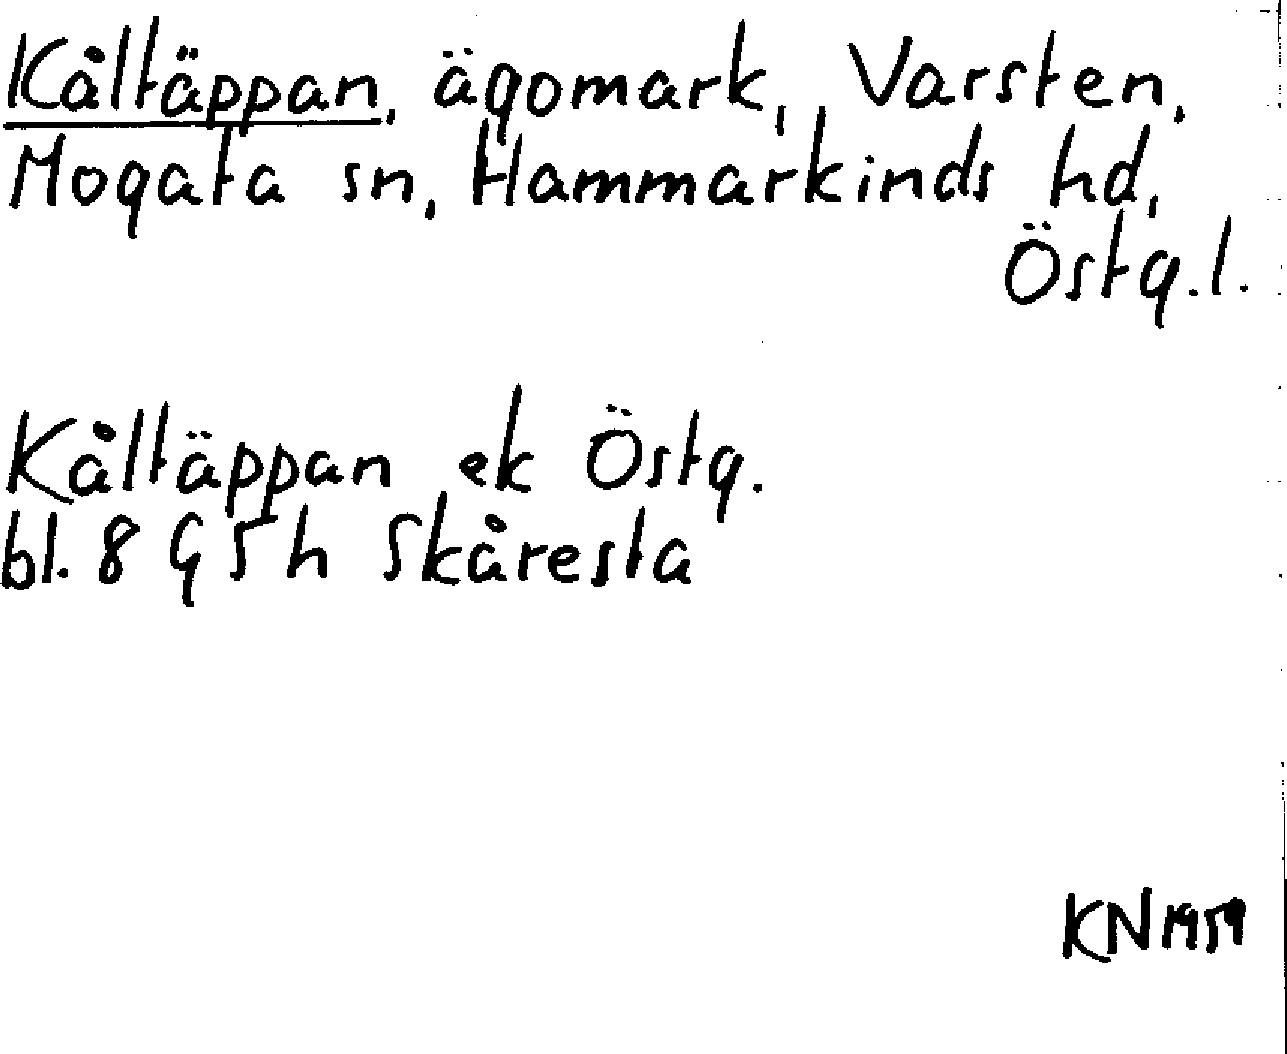 Kåltäppan, ägomark, Varsten,
Mogata sn, Hammarkinds hd,
Östg.l.
Kåltäppan ek Östg.
bl. 8 G 5 h Skåresta
KN 1959